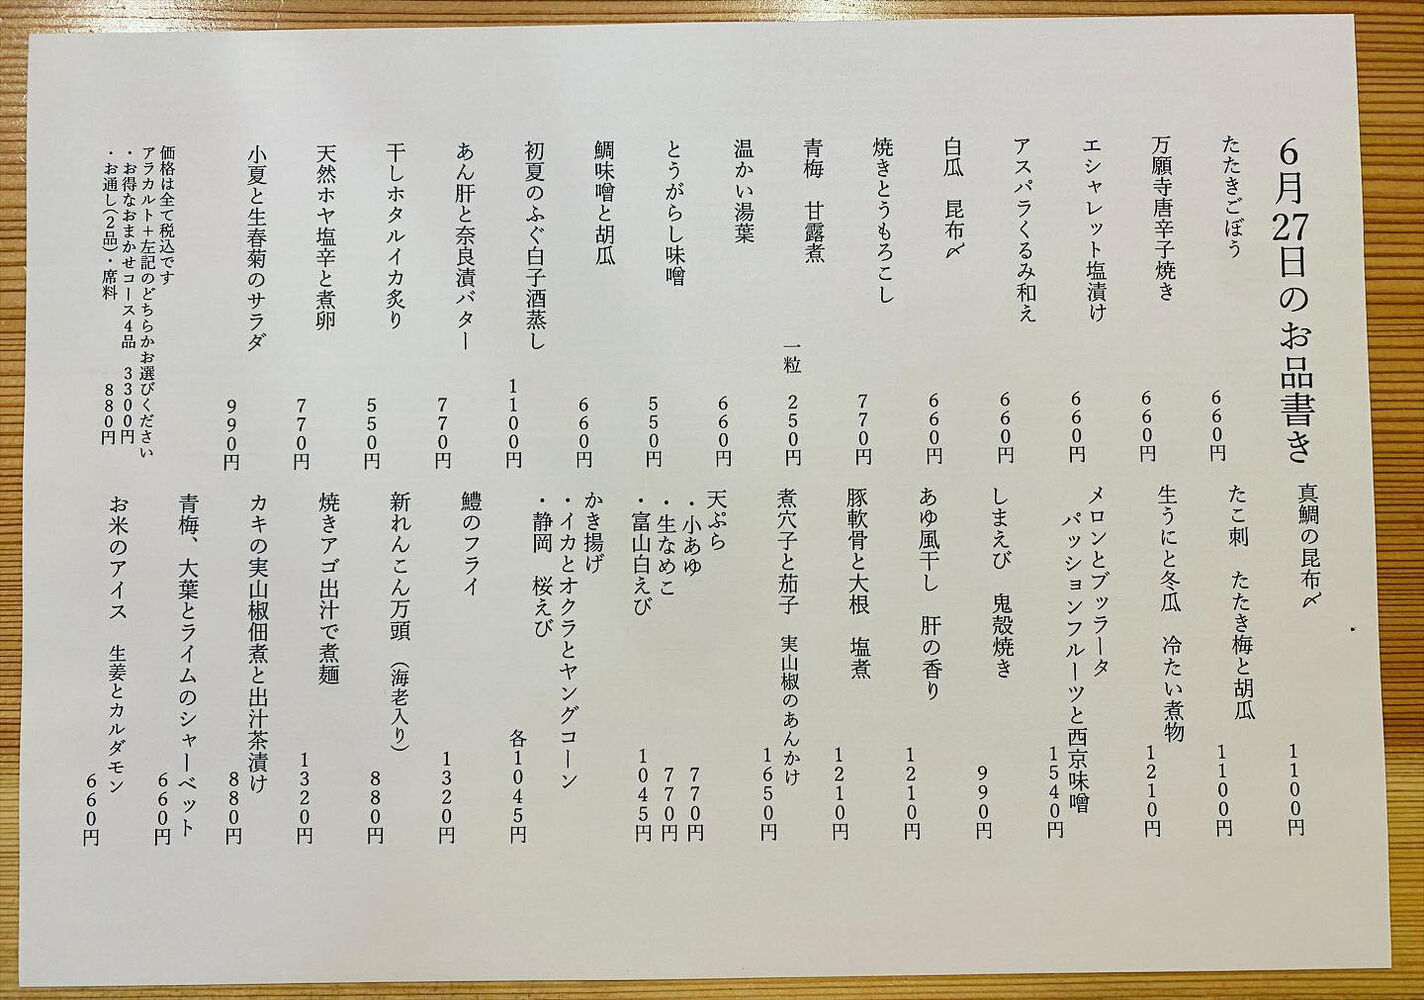 6月27日のお品書き
たたきごぼう
660円
万願寺唐辛子焼き
660円
エシャレット塩漬け
660円
アスパラくるみ和え
660円
白瓜 昆布〆
660円
焼きとうもろこし
770円
青梅 甘露煮
一粒 250円
温かい湯葉
660円
とうがらし味噌
550円
鯛味噌と胡瓜
660円
初夏のふぐ白子酒蒸し
1100円
あん肝と奈良漬バター
770円
干しホタルイカ炙り
550円
天然ホヤ塩辛と煮卵
770円
小夏と生春菊のサラダ
990円
価格は全て税込です
アラカルト+左記のどちらかお選びください
・お得なおまかせコース4品 3300円
・お通し(2品)・席料 880円
真鯛の昆布〆
1100円
たこ刺 たたき梅と胡瓜
1100円
生うにと冬瓜 冷たい煮物
1210円
メロンとブッラータ
パッションフルーツと西京味噌
1540円
しまえび 鬼殻焼き
990円
あゆ風干し 肝の香り
1210円
豚軟骨と大根 塩煮
1210円
煮穴子と茄子 実山椒のあんかけ
1650円
天ぷら
・小あゆ 770円
・生なめこ 770円
・富山白えび 1045円
かき揚げ
・イカとオクラとヤングコーン
・静岡 桜えび
各1045円
鱧のフライ
1320円
新れんこん万頭 (海老入り)
880円
焼きアゴ出汁で煮麺
1320円
カキの実山椒佃煮と出汁茶漬け
880円
青梅、大葉とライムのシャーベット
660円
お米のアイス 生姜とカルダモン
660円